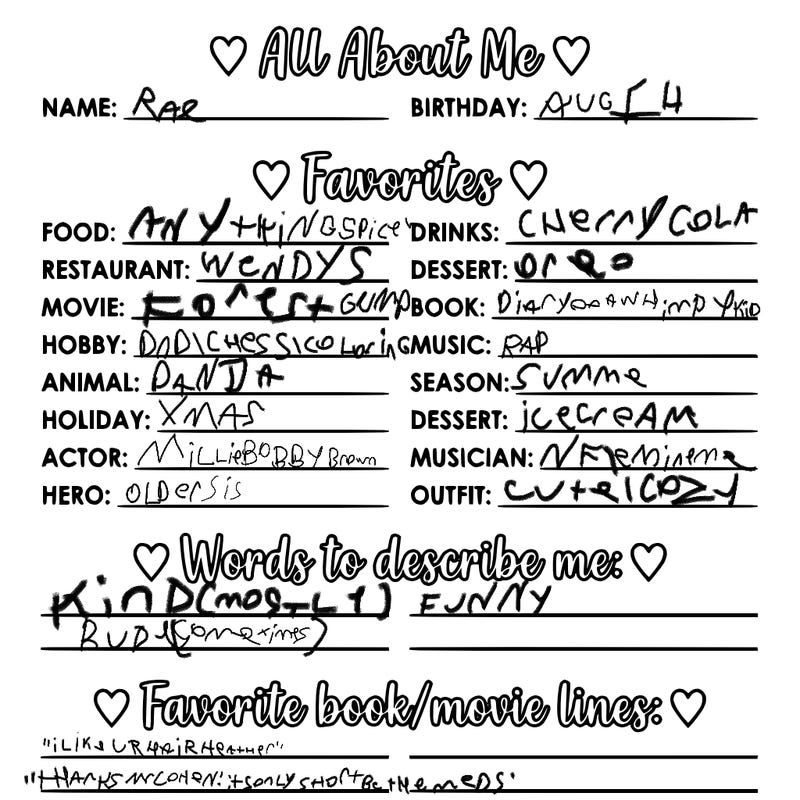 All About Me
NAME: RAE BIRTHDAY: AUG 14
Favorites
FOOD: ANYtHiNGSPicey DRINKS: CHerryCOLA
RESTAURANT: WeNDYS DESSERT: Oreo
MOVIE: Forest GUMP BOOK: DiArYOFAWHimpYKiD
HOBBY: DnD\CHesS\COLOrinG MUSIC: RAP
ANIMAL: PANDA SEASON: SUmme
HOLIDAY: XMAS DESSERT: icecreAM
ACTOR: MiLLieBOBBYBrown MUSICIAN: NF\eminem
HERO: OLDerSis OUTFIT: CUte\COZY
Words to describe me:
KinD(mostLy) FUNNY
RUDE(Sometimes)
Favorite book/movie lines:
"iLiKe URHAiRHeather"
"tHANKS MrCOHeN! itsONLY SHOrtBe tHe meDS"